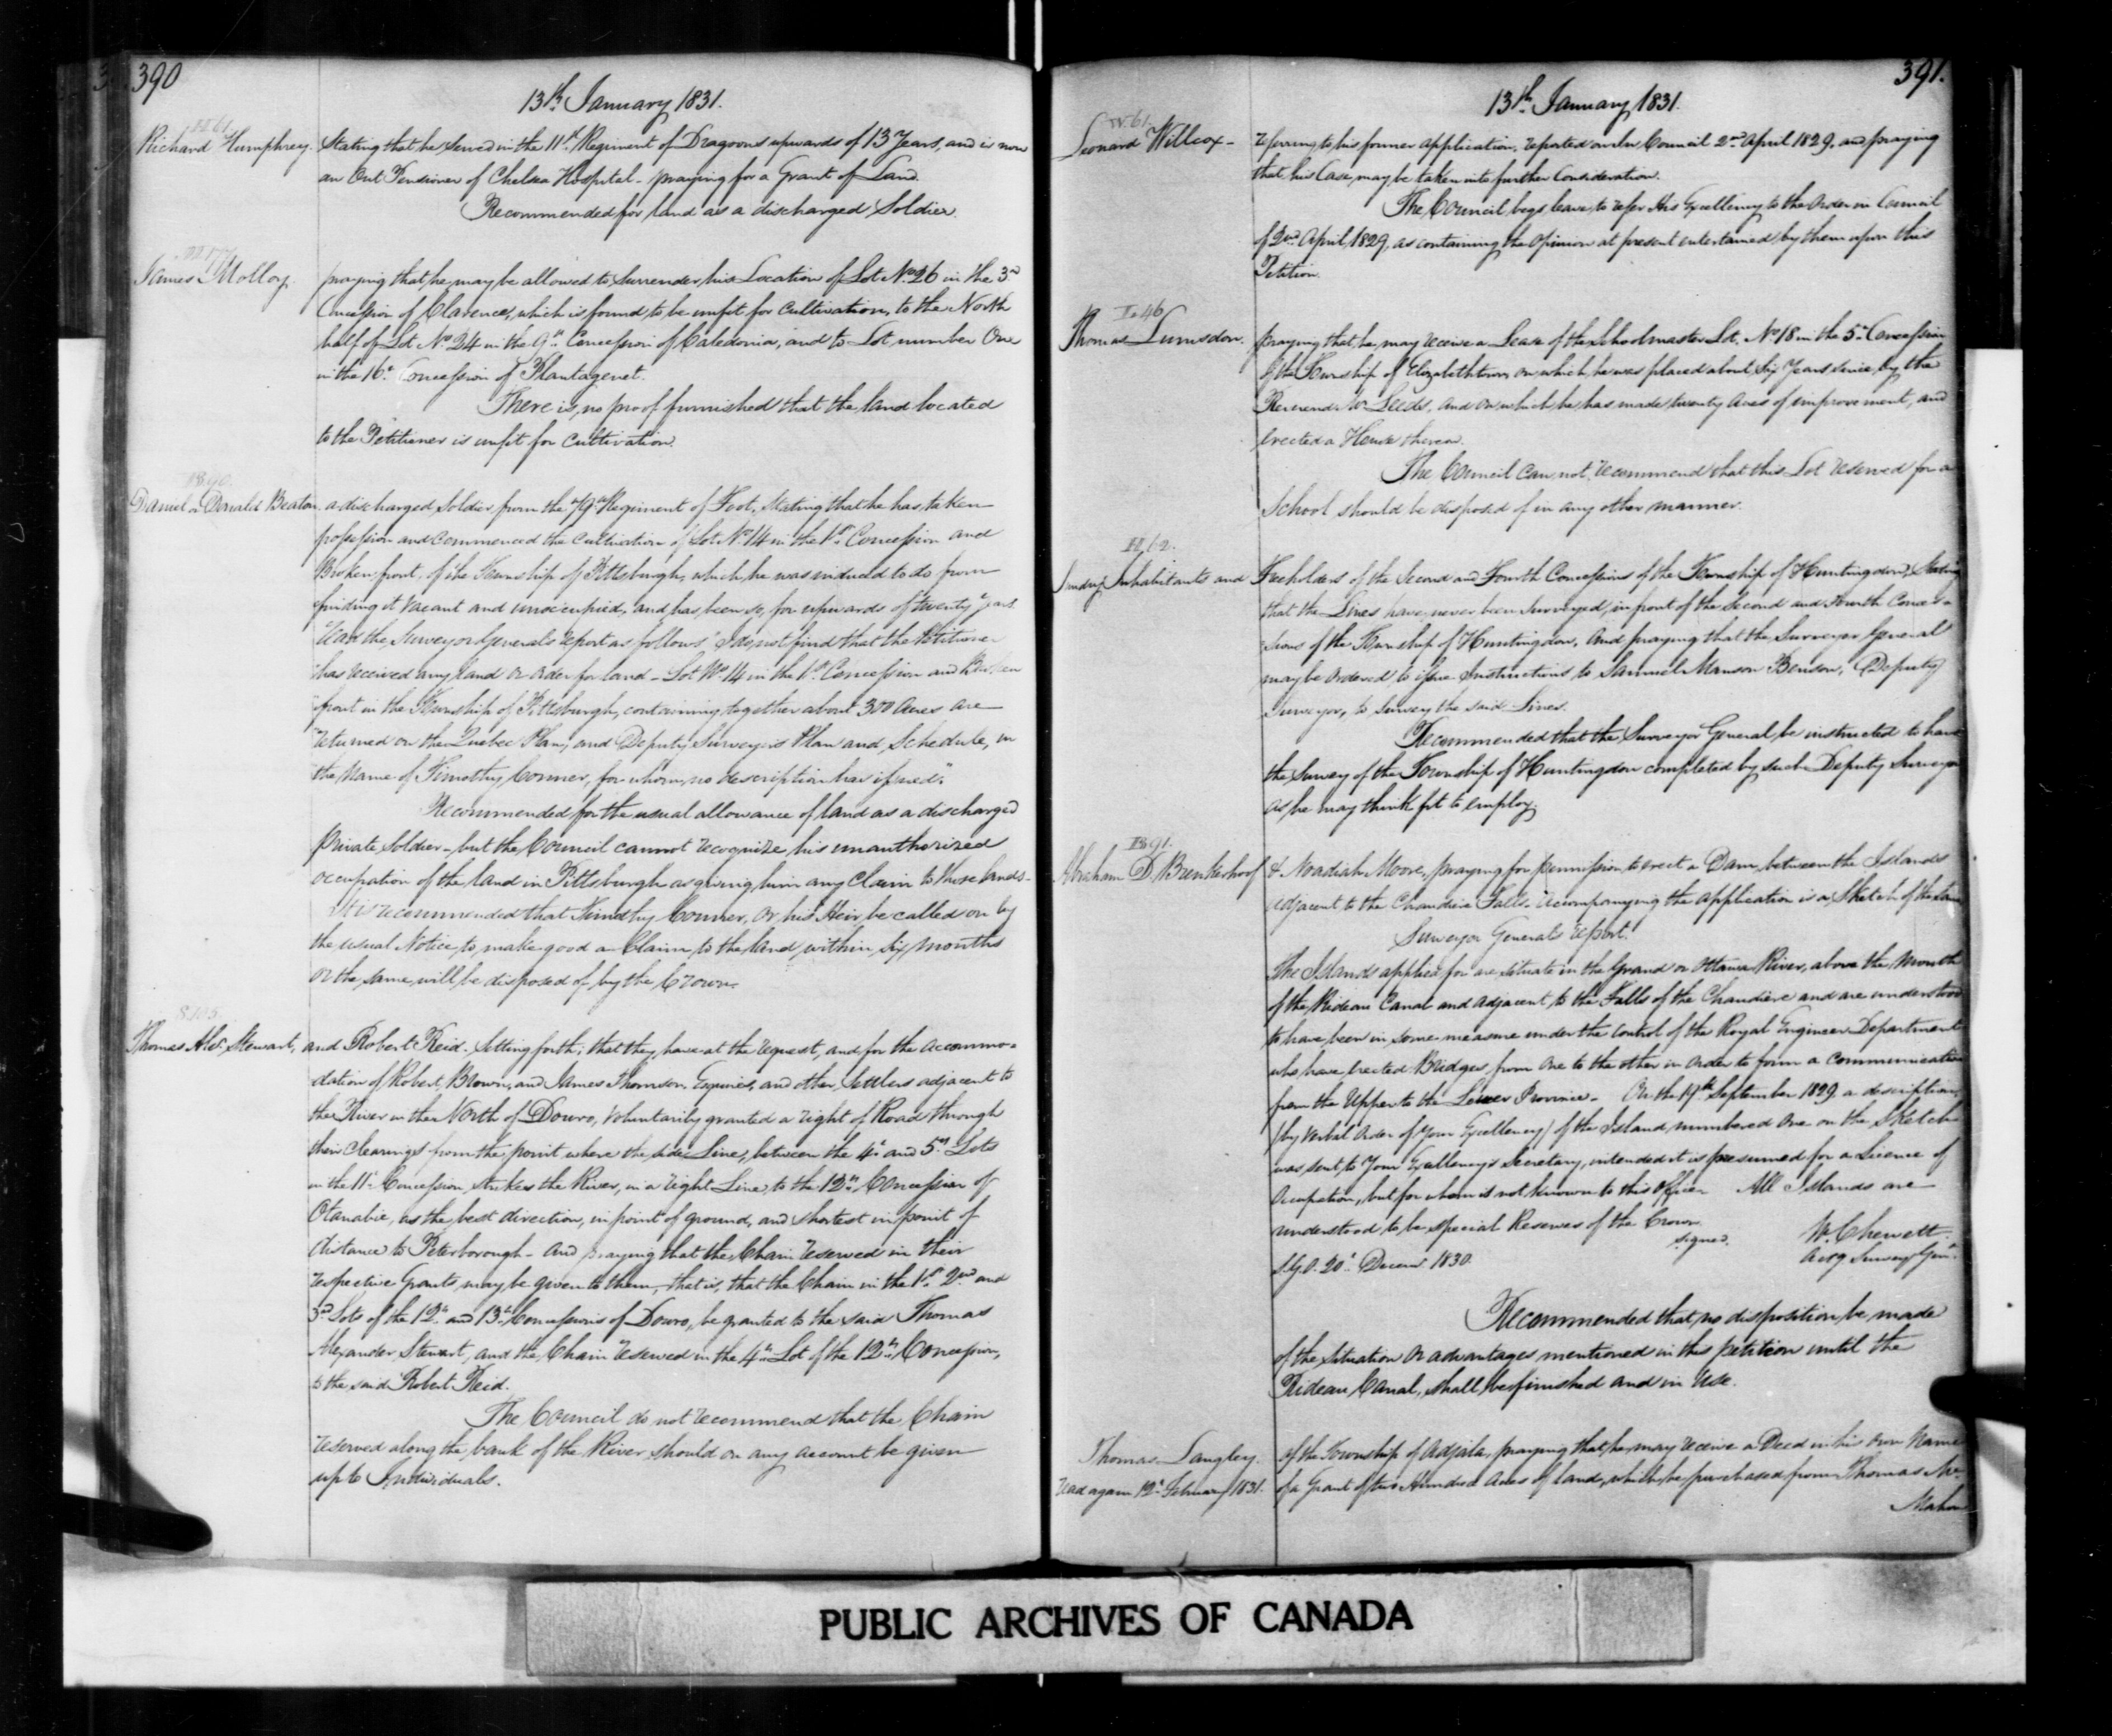 390
13th January 1831.
H 61
Richard Humphrey. Stating that he served in the 11th Regiment of Dragoons upwards of 13 Years, and is now
an Out Pensioner of Chelsea Hospital - praying for a Grant of Land.
Recommended for land as a discharged Soldier.
M 177
James Molloy. praying that he may be allowed to Surrender his Location of Lot No. 26 in the 3rd
Concession of Clarence, which is found to be unfit for Cultivation, to the North
half of Lot No. 24 in the 9th Concession of Caledonia, and to Lot number One
in the 16th Concession of Plantagenet.
There is no proof furnished that the land located
to the Petitioner is unfit for Cultivation.
B 90.
Daniel or Donald Beaton. a discharged Soldier from the 79th Regiment of Foot, Stating that he has taken
possession and Commenced the Cultivation of Lot No. 14 in the 1st Concession and
Broken front of the Township of Pittsburgh, which he was induced to do from
finding it vacant and unoccupied, and has been so, for upwards of twenty Years.
Read the Surveyor Generals Report as follows "I do not find that the Petitioner
"has received any land or order for land - Lot No. 14 in the 1st Concession and Broken
"front in the Township of Pittsburgh, containing together about 300 Acres are
"returned on the Quebec Plan, and Deputy Surveyors Plan and Schedule, in
"the Name of Timothy Conner, for whom no description has issued".
Recommended for the usual allowance of land as a discharged
Private Soldier - but the Council cannot recognize his unauthorized
occupation of the land in Pittsburgh as giving him any Claim to those lands -
It is recommended that Timothy Conner, or his Heir, be called on by
the usual Notice, to make good a Claim to the land, within six months
or the same will be disposed of by the Crown.
S. 105.
Thomas Alexr. Stewart, and Robert Reid. Setting forth, that they have at the request, and for the accommo-
dation of Robert Brown, and James Thomson Esquires, and other Settlers adjacent to
the River in the North of Douro, Voluntarily granted a right of Road through
their clearings from the point where the side Line, between the 4th and 5th Lots
in the 11th Concession strikes the River, in a right Line, to the 12th Concession of
Otanabie, as the best direction, in point of ground, and shortest in point of
distance to Peterborough - And praying that the Chain reserved in their
respective Grants may be given to them, that is, that the Chain in the 1st 2nd and
3rd Lots of the 12th and 13th Concessions of Douro, be granted to the said Thomas
Alexander Stewart, and the Chain reserved in the 4th Lot of the 12th Concession,
to the said Robert Reid.
The Council do not recommend that the Chain
reserved along the bank of the River should on any account be given
up to Individuals.
391.
13th January 1831.
W. 61.
Leonard Willcox - referring to his former application, reported on in Council 2nd April 1829, and praying
that his Case may be taken into further Consideration.
The Council begs leave to refer His Excellency to the Order in Council
of 2nd April 1829, as containing the Opinion at present entertained by them upon this
Petition.
L 46
Thomas Lumsdon. praying that he may receive a Lease of the Schoolmaster Lot, No. 18 in the 5th Concession
of the Township of Elizabethtown on which he was placed about Six Years since, by the
Reverend Mr Leeds, and on which he has made twenty Acres of improvement, and
erected a House thereon.
The Council can not recommend that this Lot reserved for a
School should be disposed of in any other manner.
H 62.
Sundry Inhabitants and Freeholders of the Second and Fourth Concessions of the Township of Huntingdon, Stating
that the Lines have never been Surveyed, in front of the Second and Fourth Conces-
sions of the Township of Huntingdon, And praying that the Surveyor General
may be Ordered to issue Instructions to Samuel Manson Benson, Deputy
Surveyor, to Survey the said Lines.
Recommended that the Surveyor General be instructed to have
the Survey of the Township of Huntingdon completed by such Deputy Surveyor
as he may think fit to employ.
B 91.
Abraham D. Brunkerhoof & Noadiah Moore, praying for permission to erect a Dam, between the Islands
adjacent to the Chaudiere Falls. Accompanying the application is a Sketch of the same
Surveyor General's report.
The Islands applied for are situate in the Grand or Ottawa River, above the Mouth
of the Rideau Canal and adjacent to the Falls of the Chaudière and are understood
to have been in some measure under the Control of the Royal Engineer Department
who have erected Bridges from one to the other in order to form a communication
from the Upper to the Lower Province - On the 19th September 1829 a description
(by Verbal Order of Your Excellency) of the Island numbered One on the Sketch
was sent to Your Excellency's Secretary, intended it is presumed for a Licence of
Occupation, but for whom is not known to this Office. All Islands are
understood to be Special Reserves of the Crown.
Signed. W. Chewett.
Actg Surveyr Genl.
S.G.O. 20th Decemr 1830.
Recommended that no disposition be made
of the Situation or advantages mentioned in this petition until the
Rideau Canal, shall be finished and in Use.
Thomas Langley. of the Township of Adjala, praying that he may receive a Deed in his Own Name
read again 12th February 1831. of a Grant of two Hundred Acres of Land, which he purchased from Thomas Mc
Mahon
PUBLIC ARCHIVES OF CANADA